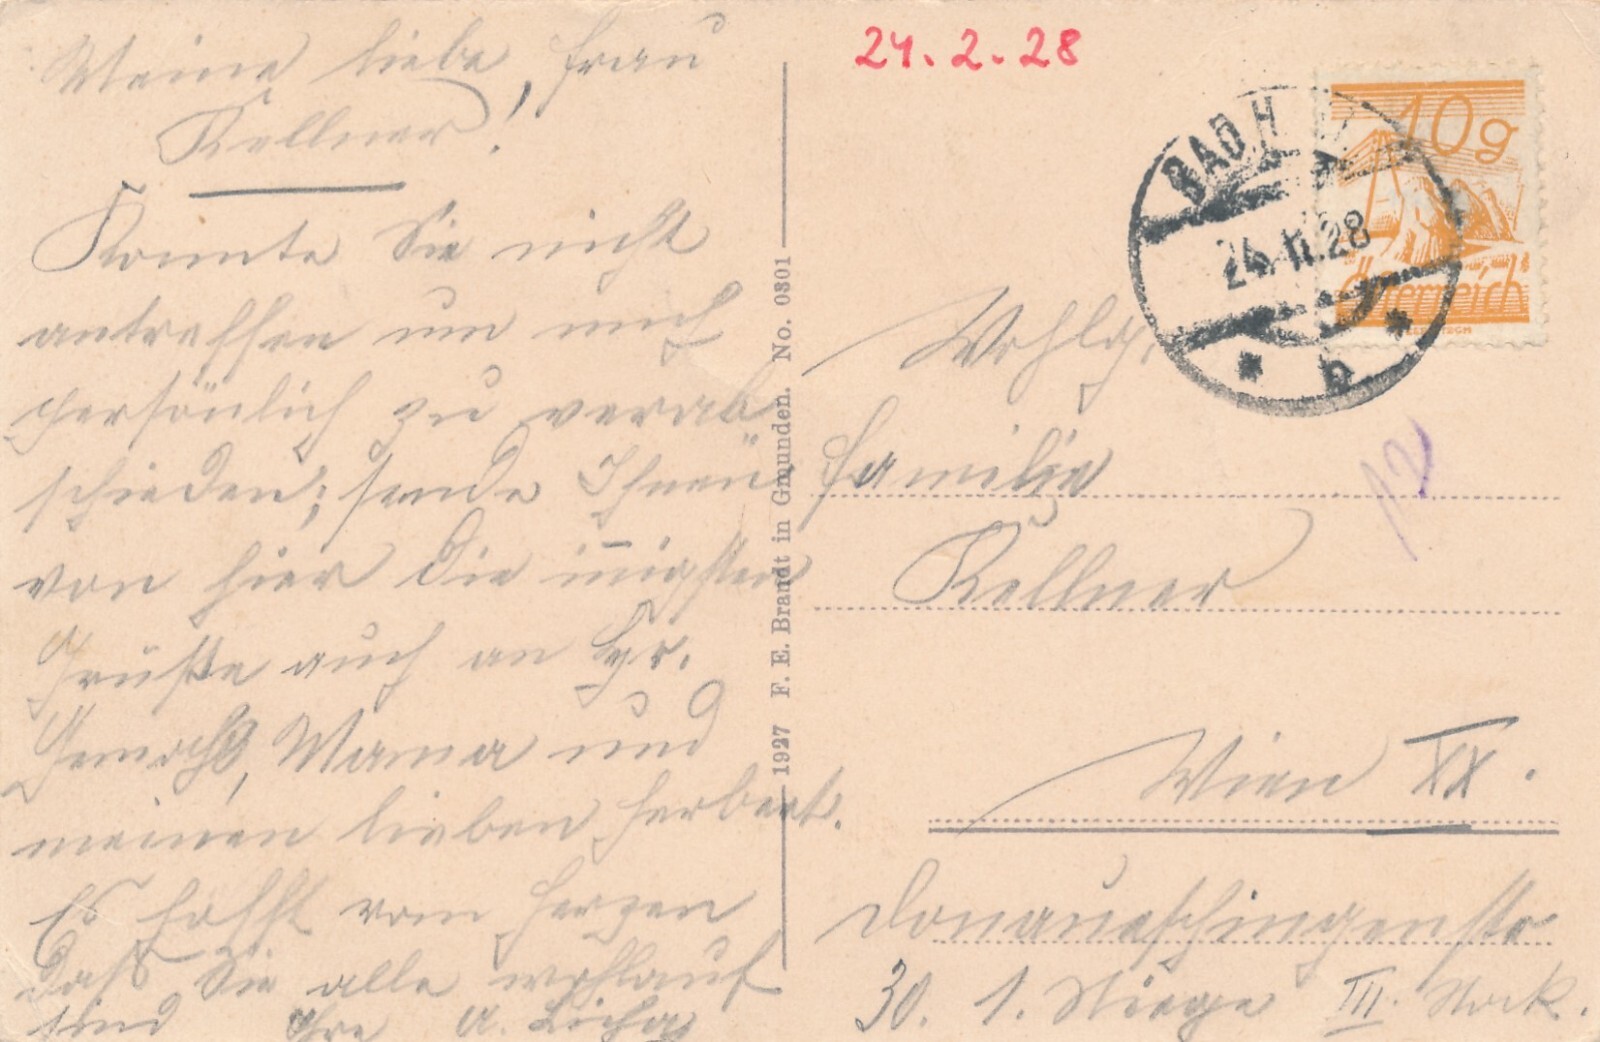 Meine liebe Frau
Kellner!
Konnte Sie nicht
antreffen um mich
persönlich zu verab
schieden; sende Ihnen
von hier die innigsten
Grüße auch an Hr.
Gemahl, Mama und
meinen lieben Herbert.
Es hofft vom Herzen
daß Sie alle wohlauf
sind Ihre A.
1927 F. E. Brandt in Gmunden. No. 0301
24.2.28
10g
Österreich
BAD H
24.II.28
* b *
12
Wohlg.
Familie
Kellner
Wien XX.
Donaueschingenstr
30. 1. Stiege III. Stock.